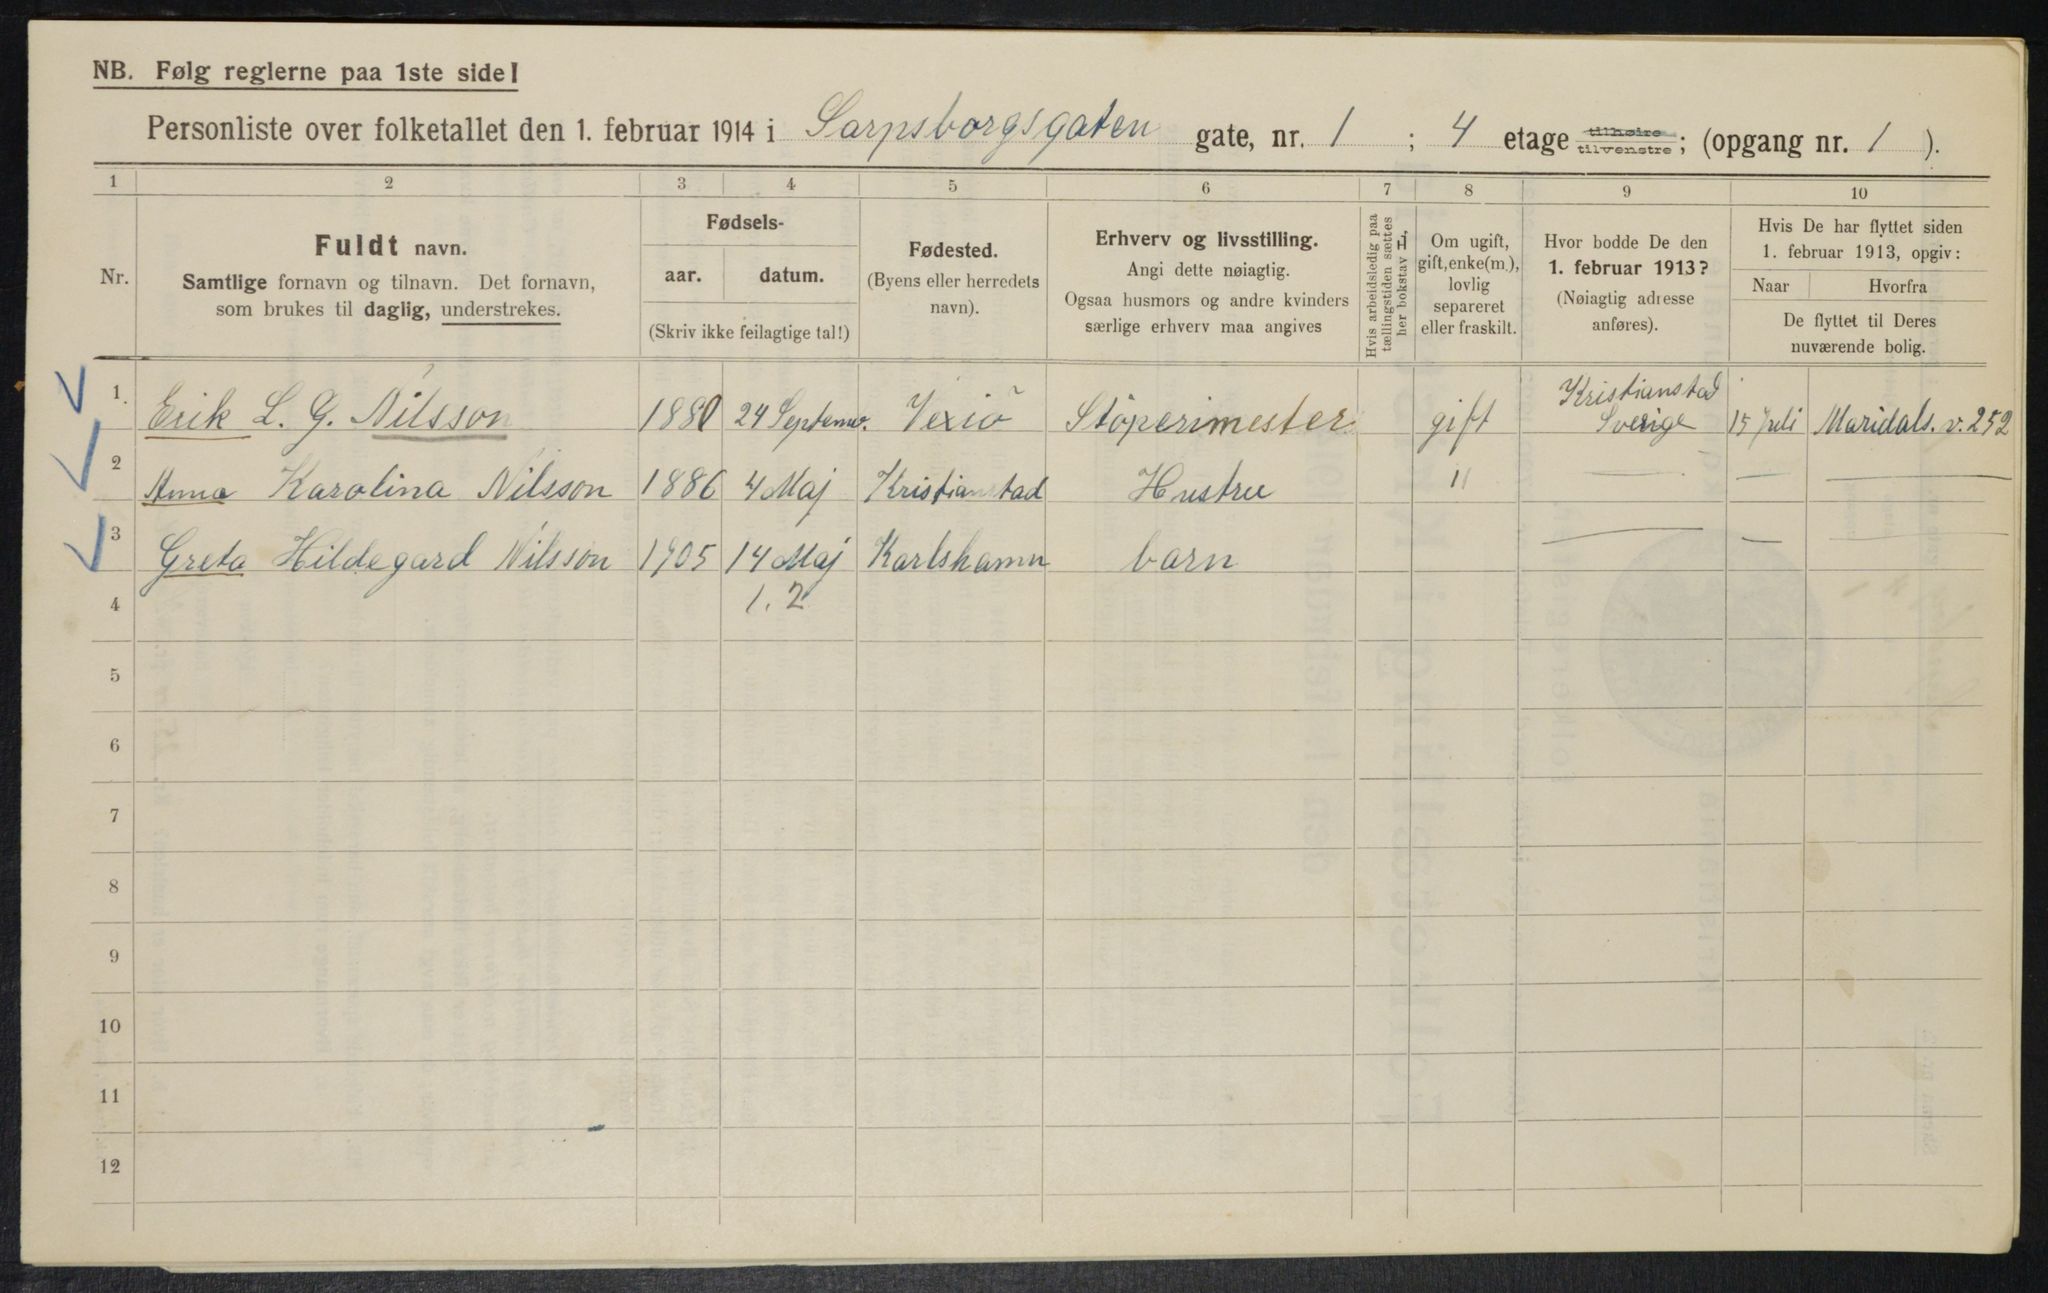 NB. Følg reglerne paa 1ste side!
Personliste over folketallet den 1. februar 1914 i Sarpsborgsgaten gate, nr. 1 ; 4 etage tilhøire tilvenstre ; (opgang nr. 1 ).
1 2 3 4 5 6 7 8 9 10
Nr.
Fuldt navn.
Samtlige fornavn og tilnavn. Det fornavn,
som brukes til daglig, understrekes.
Fødsels-
aar. datum.
(Skriv ikke feilagtige tal!)
Fødested.
(Byens eller herredets
navn).
Erhverv og livsstilling.
Angi dette nøiagtig.
Ogsaa husmors og andre kvinders
særlige erhverv maa angives
Hvis arbeidsledig paa
tællingstiden sættes
her bokstav L.
Om ugift,
gift, enke(m.),
lovlig
separeret
eller fraskilt.
Hvor bodde De den
1. februar 1913?
(Nøiagtig adresse
anføres).
Hvis De har flyttet siden
1. februar 1913, opgiv:
Naar Hvorfra
De flyttet til Deres
nuværende bolig.
1. Erik L. G. Nilsson 1880 24 Septemw. Vexiö Stöperimester gift Kristianstad Sverige 15 Juli Maridals. v. 252
2 Anna Karolina Nilsson 1886 4 Maj Kristianstad Hustru " — — —
3 Greta Hildegard Nilsson 1905 14 Maj Karlshamn barn — — —
4 1. 2
5
6
7
8
9
10
11
12